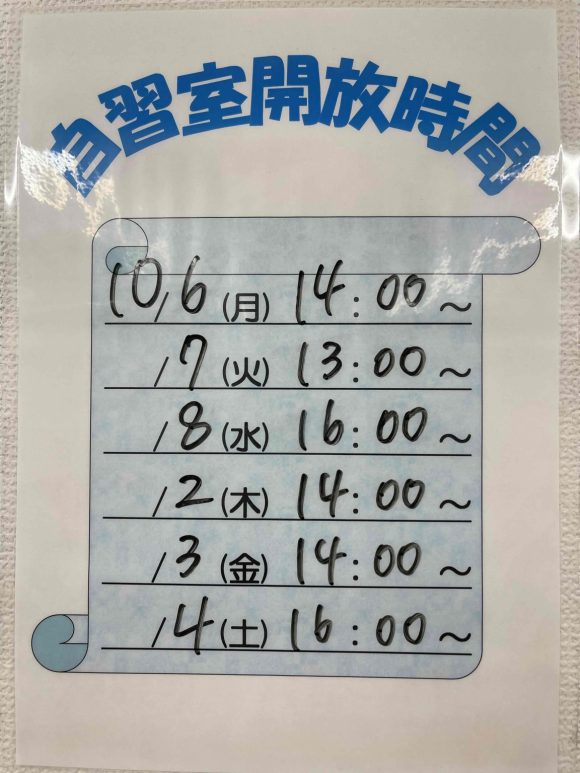 自習室開放時間
10/6(月) 14:00~
/7(火) 13:00~
/8(水) 16:00~
/2(木) 14:00~
/3(金) 14:00~
/4(土) 16:00~